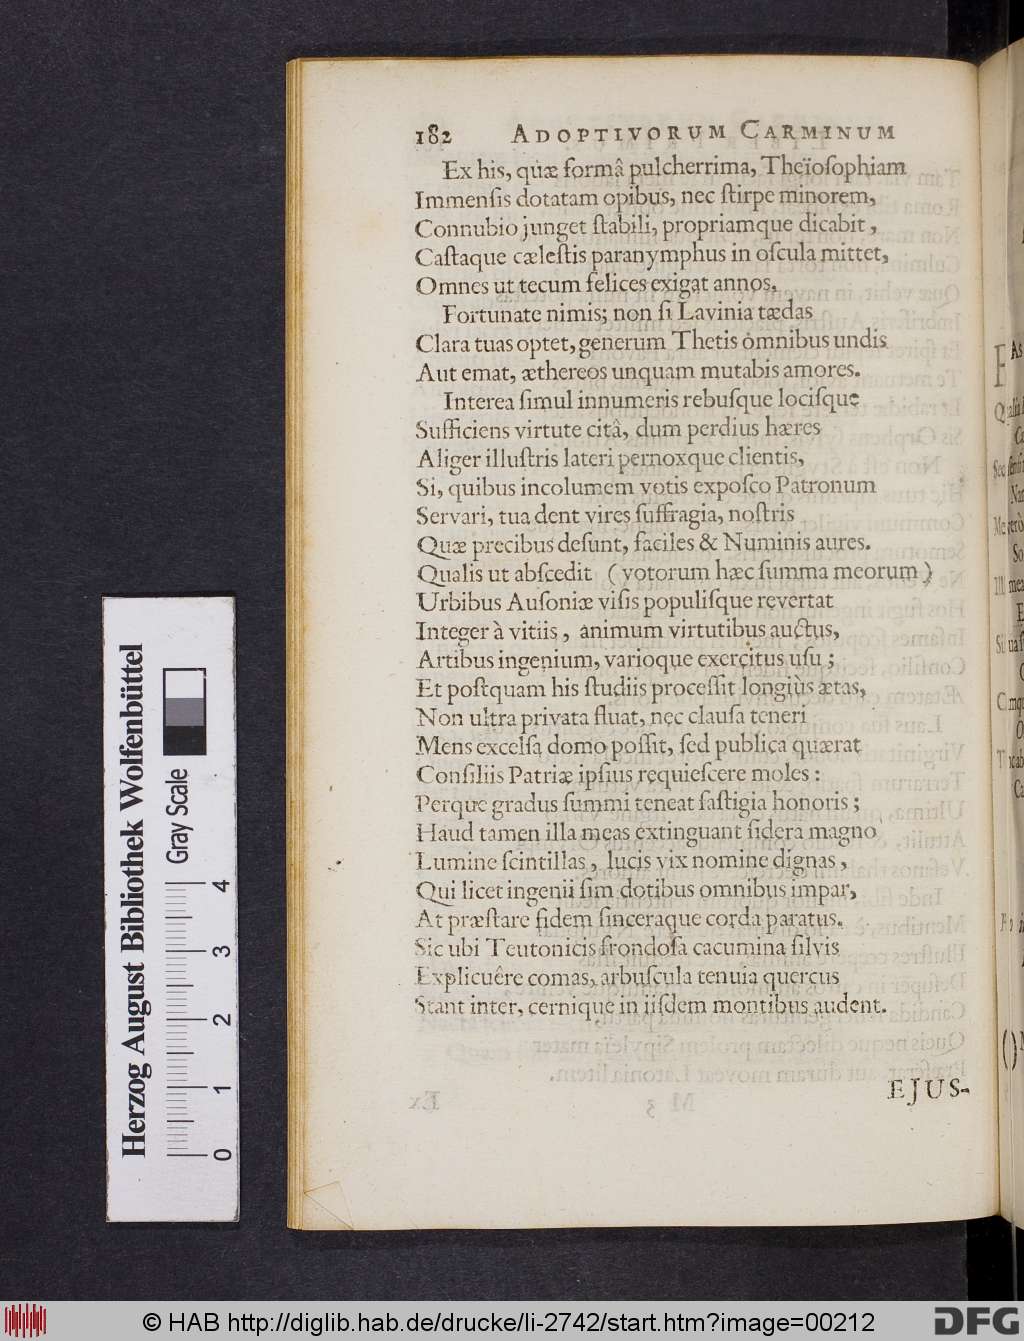 182 ADOPTIVORUM CARMINUM
Ex his, quæ formâ pulcherrima, Theïoſophiam
Immenſis dotatam opibus, nec ſtirpe minorem,
Connubio junget ſtabili, propriamque dicabit,
Caſtaque cæleſtis paranymphus in oſcula mittet,
Omnes ut tecum felices exigat annos.
Fortunate nimis; non ſi Lavinia tædas
Clara tuas optet, generum Thetis omnibus undis
Aut emat, æthereos unquam mutabis amores.
Interea ſimul innumeris rebuſque lociſque
Sufficiens virtute citâ, dum perdius hæres
Aliger illuſtris lateri pernoxque clientis,
Si, quibus incolumem votis expoſco Patronum
Servari, tua dent vires ſuffragia, noſtris
Quæ precibus deſunt, faciles & Numinis aures.
Qualis ut abſcedit (votorum hæc ſumma meorum)
Urbibus Auſoniæ viſis populiſque revertat
Integer à vitiis, animum virtutibus auctus,
Artibus ingenium, varioque exercitus uſu;
Et poſtquam his ſtudiis proceſſit longiùs ætas,
Non ultra privata fluat, nec clauſa teneri
Mens excelſa domo poſſit, ſed publica quærat
Conſiliis Patriæ ipſius requieſcere moles:
Perque gradus ſummi teneat faſtigia honoris;
Haud tamen illa meas extinguant ſidera magno
Lumine ſcintillas, lucis vix nomine dignas,
Qui licet ingenii ſim dotibus omnibus impar,
At præſtare fidem ſinceraque corda paratus.
Sic ubi Teutonicis frondoſa cacumina ſilvis
Explicuêre comas, arbuſcula tenuia quercus
Stant inter, cernique in iiſdem montibus audent.
EJUS-
Herzog August Bibliothek Wolfenbüttel
Gray Scale
0 1 2 3 4
© HAB http://diglib.hab.de/drucke/li-2742/start.htm?image=00212
DFG